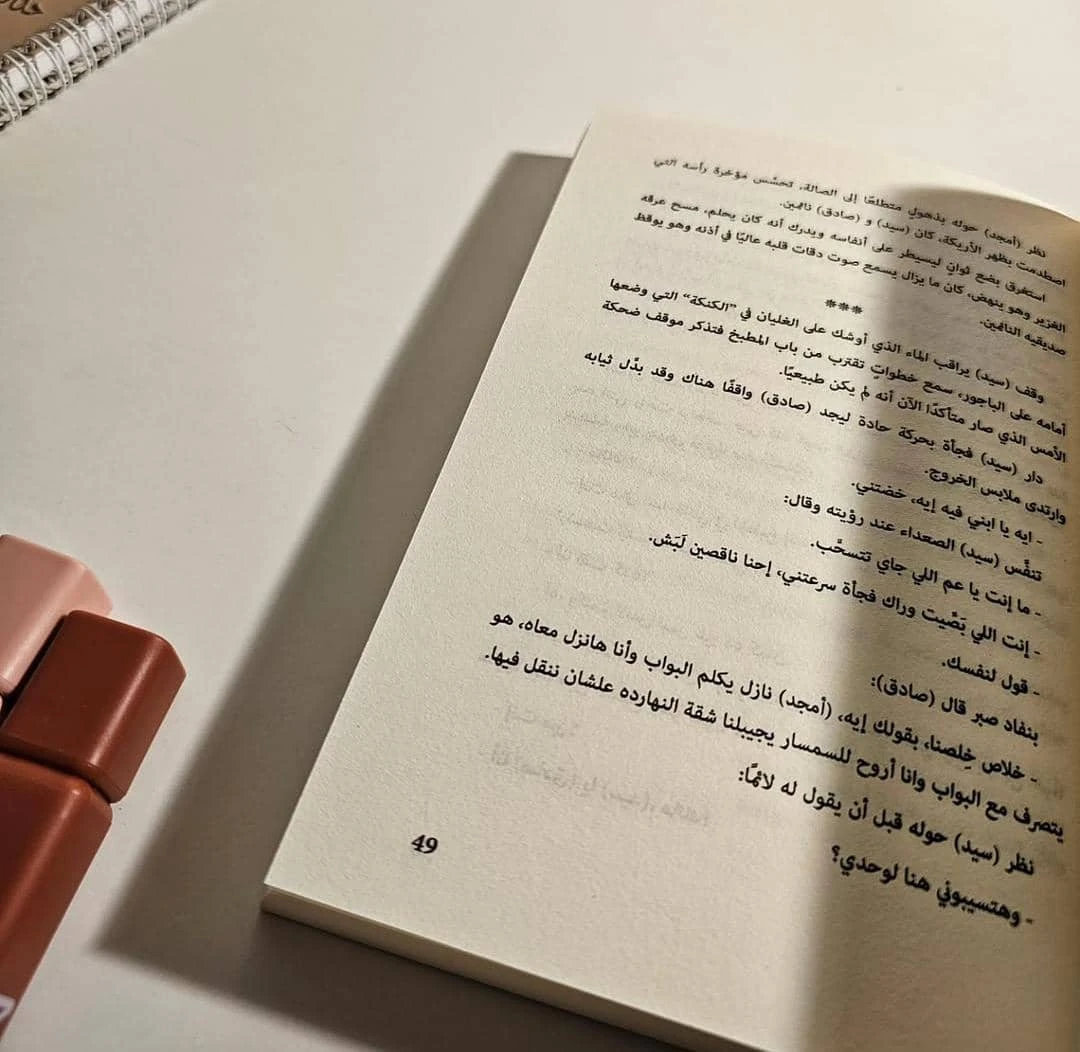 نظر (أمجد) حوله بذهولٍ متطلعًا إلى الصالة، تحسَّس مؤخرة رأسه التي
اصطدمت بظهر الأريكة، كان (سيد) و (صادق) نائمين.
استغرق بضع ثوانٍ ليسيطر على أنفاسه ويدرك أنه كان يحلم، مسح عرقه
الغزير وهو ينهض، كان ما يزال يسمع صوت دقات قلبه عاليًا في أذنه وهو يوقظ
صديقيه النائمين.
***
وقف (سيد) يراقب الماء الذي أوشك على الغليان في "الكنكة" التي وضعها
أمامه على الباجور، سمع خطواتٍ تقترب من باب المطبخ فتذكر موقف ضحكة
الأمس الذي صار متأكدًا الآن أنه لم يكن طبيعيًا.
دار (سيد) فجأة بحركة حادة ليجد (صادق) واقفًا هناك وقد بدَّل ثيابه
وارتدى ملابس الخروج.
- ايه يا ابني فيه إيه، خضتني.
تنفَّس (سيد) الصعداء عند رؤيته وقال:
- ما إنت يا عم اللي جاي تتسحَّب.
- إنت اللي بَصِّيت وراك فجأة سرعتني، إحنا ناقصين لَبَش.
- قول لنفسك.
بنفاد صبر قال (صادق):
- خلاص خِلصنا، بقولك إيه، (أمجد) نازل يكلم البواب وأنا هانزل معاه، هو
يتصرف مع البواب وانا أروح للسمسار يجيبلنا شقة النهارده علشان ننقل فيها.
نظر (سيد) حوله قبل أن يقول له لائمًا:
- وهتسيبوني هنا لوحدي؟
49